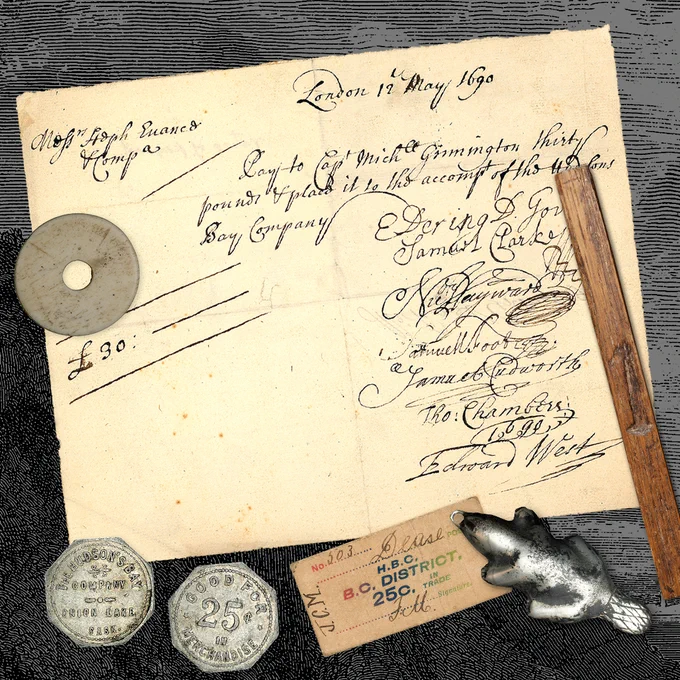 London 12 May 1690
Messrs Steph Evance
& Compa
Pay to Capt Michll Grimington thirty
pounds & place it to the accompt of the Hudsons
Bay Company
E Dering D. Gov
Samuel Clarke
Nic Hayward
£ 30:
Samuel Cudworth
Tho: Chambers:
1690
Edward West
HUDSON'S BAY
COMPANY
UNION LAKE,
SASK.
GOOD FOR
25¢
IN
MERCHANDISE
No. 303
H.B.C.
B.C. DISTRICT.
25C. IN TRADE
Signature.
J.C.M.